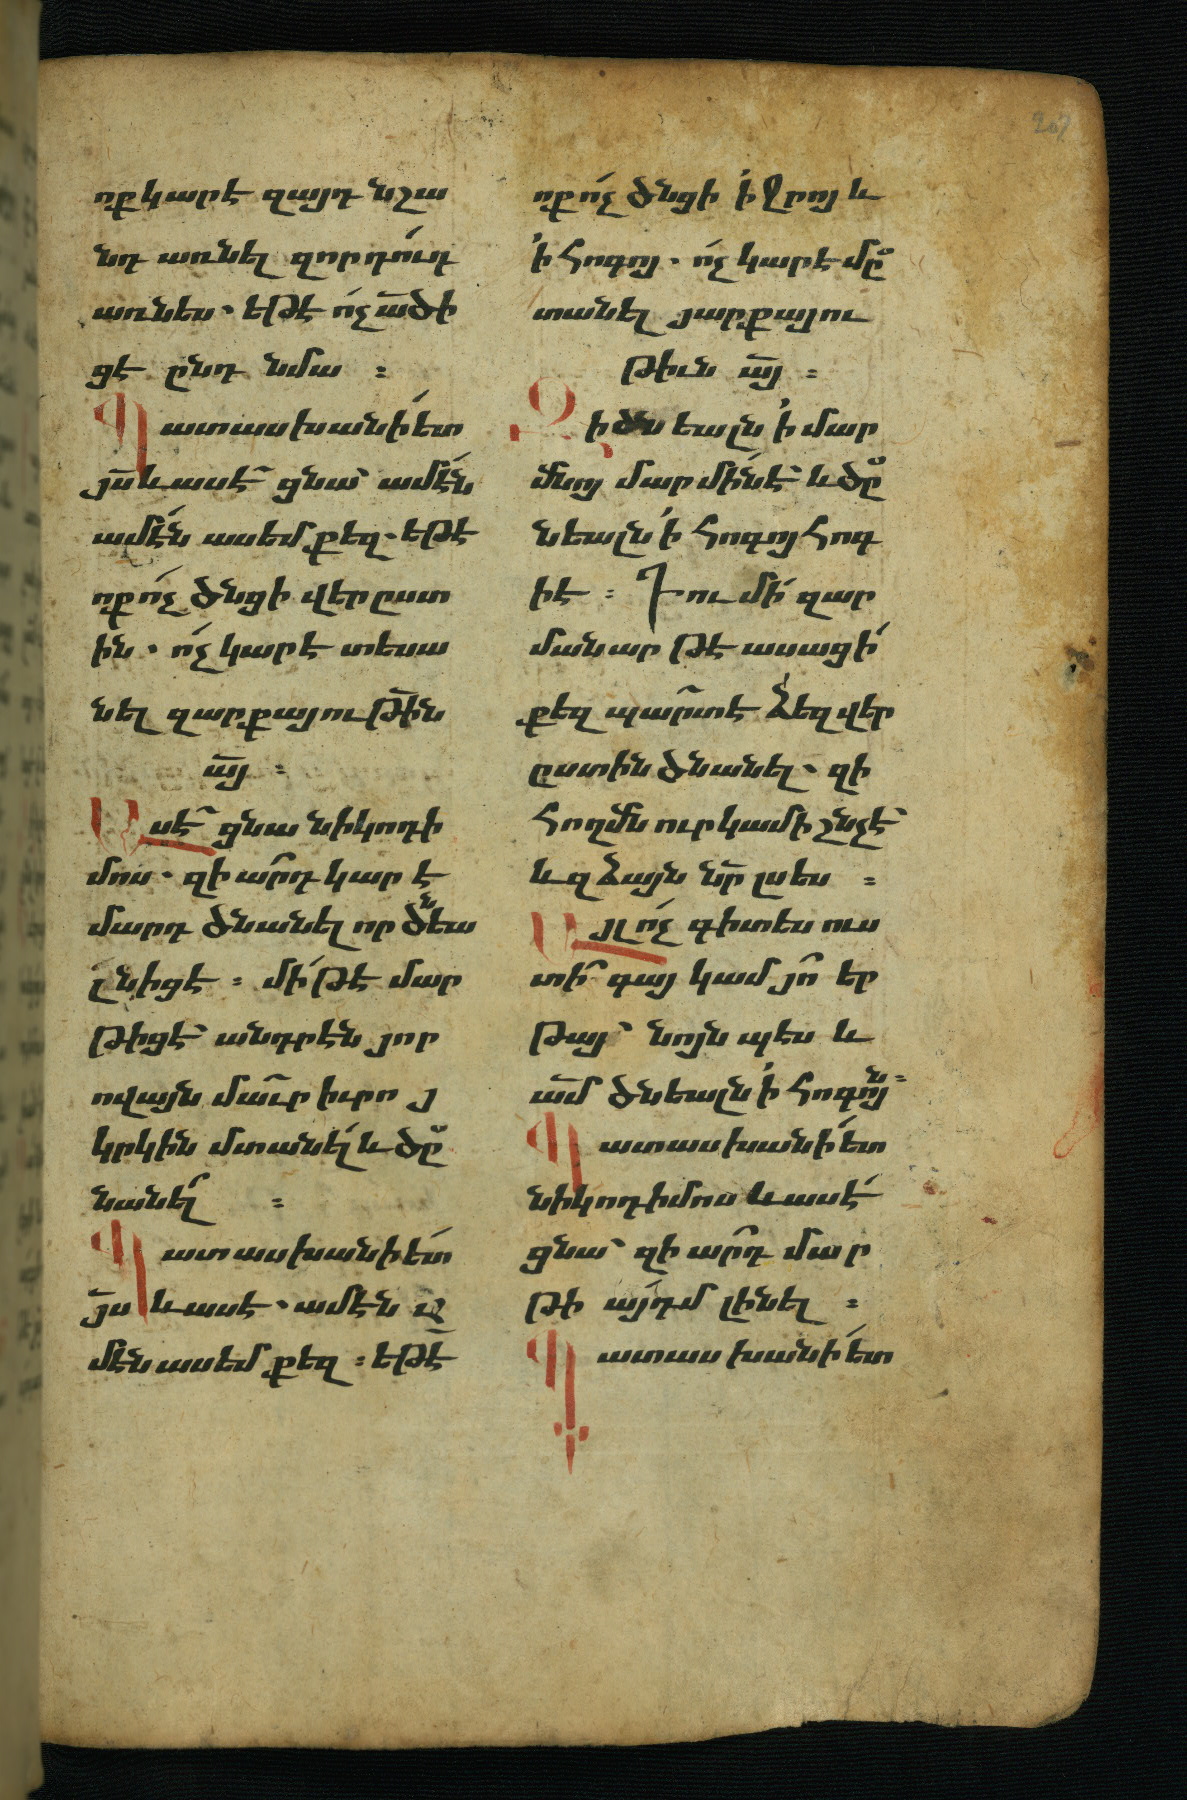 ոք կարէ զայդ նշա
նդ առնել զոր դուդ
առնես. եթէ ոչ ա՟ծ ի
ցէ ընդ նմա ։
Պատասխանի ետ
յ՟ս և ասէ ցնա՝ ամէն
ամէն ասեմ քեզ. եթէ
ոք ոչ ծնցի վերըստ
ին. ոչ կարէ տեսա
նել զարքայութի՟ն
ա՟յ ։
Ասէ ցնա նիկոդի
մոս. զիա՟րդ կար է
մարդ ծնանել որ ծնեա
լն իցէ ։ մի թէ մար
թիցէ՝ անդրէն յոր
ովայն մաւր իւրո յ
կրկին մտանել և ծը
նանել ։
Պատասխանի ետ
յ՟ս և ասէ. ամէն ա
մէն ասեմ քեզ ։ եթէ
ոք ոչ ծնցի ՛ի ջրոյ և
՛ի հոգոյ. ոչ կարէ մը
տանել յարքայու
թիւն ա՟յ ։
Զի ծնեալն ՛ի մար
մնոյ մարմին է՝ և ծը
նեալն ՛ի հոգոյ հոգ
ի է ։ Դու մի զար
մանար թէ ասացի
քեզ պարտ է ձեզ վեր
ըստին ծնանել. զի
հողմն ուր կամի շնչէ՝
և զձայն նր՟ լսես ։
Այլ ոչ գիտես ուս
տի գայ կամ յո՟ եր
թայ՝ նոյնպէս և
ա՟մ ծնեալն ՛ի հոգոյն ։
Պատասխանի ետ
նիկոդիմոս և ասէ
ցնա՝ զիա՟րդ մար
թի այդմ լինել ։
Պատասխանի ետ